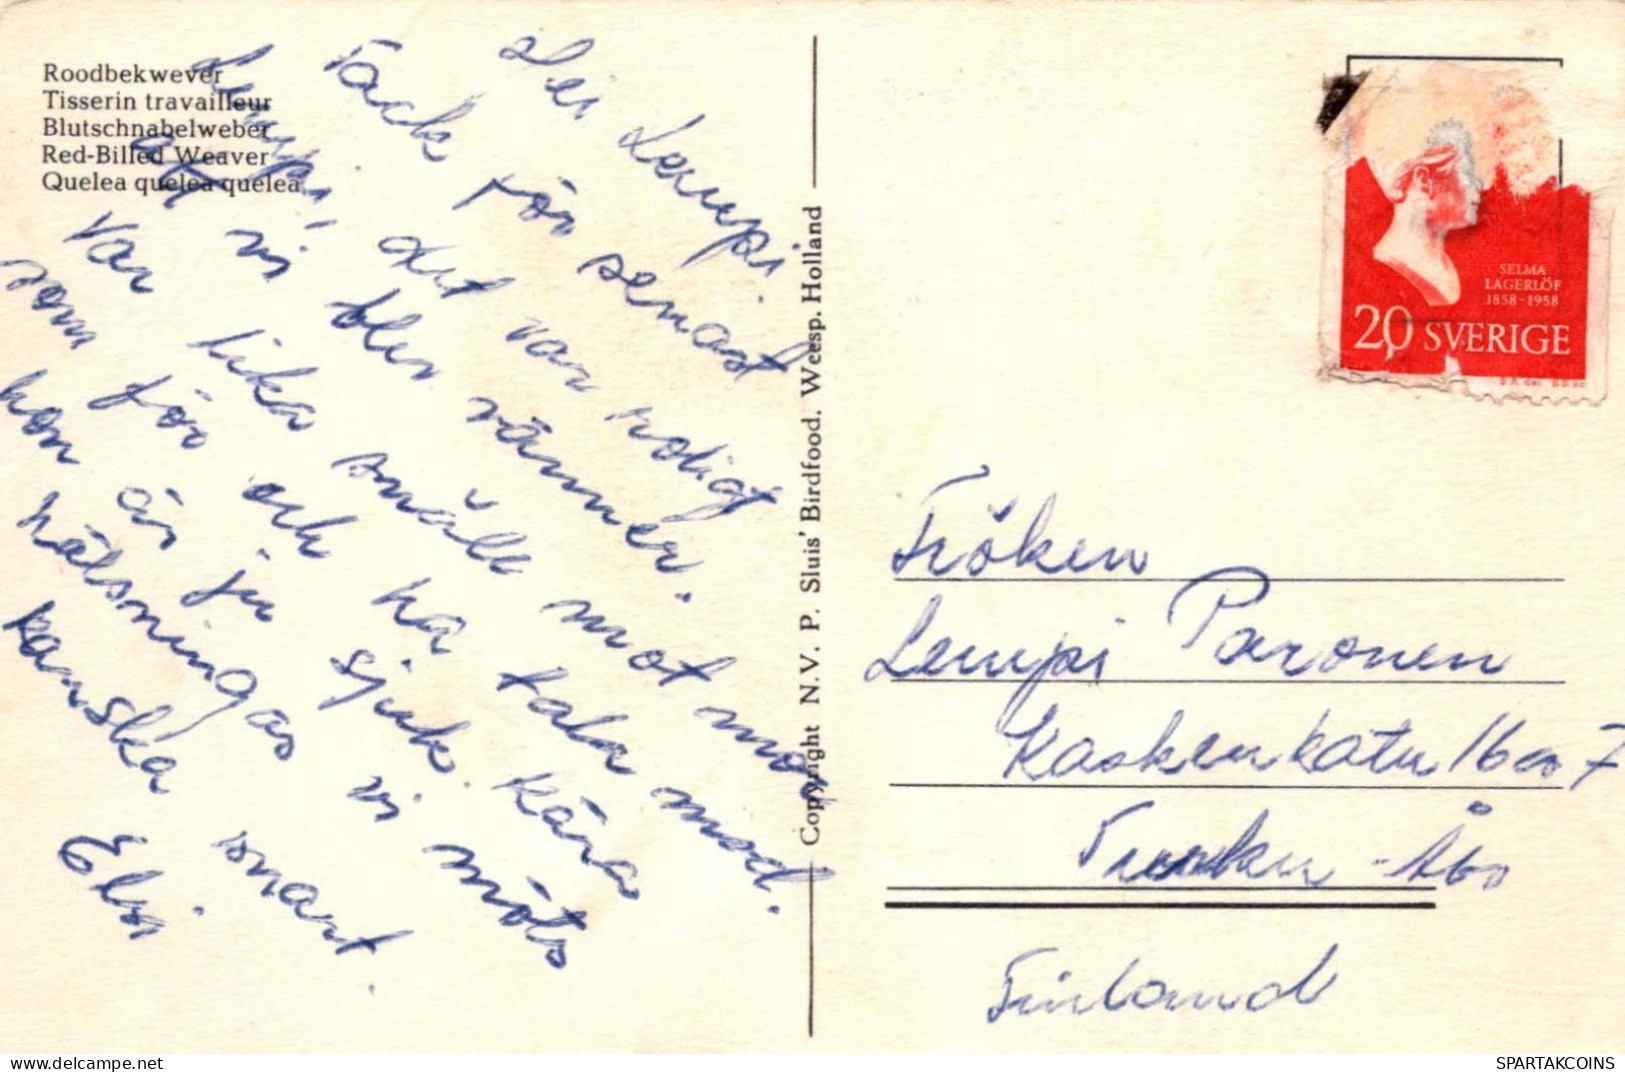 Roodbekwever
Tisserin travailleur
Blutschnabelweber
Red-Billed Weaver
Quelea quelea quelea
Hei Lempi.
Tack för senast
Lempi, det var roligt
att vi blev vänner.
var lika snäll mot mor
som för och ha tala med.
hon är ju sjuk. kära
hälsningar vi möts
kanska snart.
Elsi
Copyright N.V. P. Sluis' Birdfood. Weesp. Holland
SELMA
LAGERLÖF
1858-1958
20 SVERIGE
Fröken
Lempi Paronen
Kaskenkatu 16 as 7
Turku - Åbo
Finland
SPARTAKCOINS
www.delcampe.net